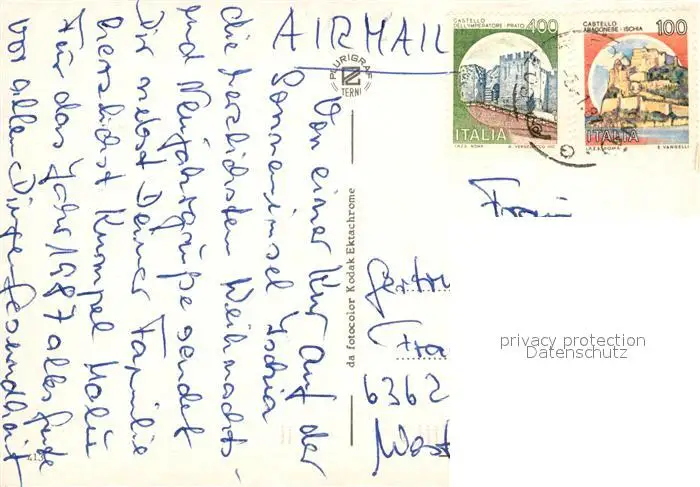 AIRMAIL
Von einer Kur auf der
Sonneninsel Ischia
die herzlichsten Weihnachts-
und Neujahrsgrüße sendet
Dir nebst Deiner Familie
herzlichst
Für das Jahr 1987 alles Gute
vor allen Dingen Gesundheit
413
PLURIGRAF
TERNI
da fotocolor Kodak Ektachrome
CASTELLO
DELL'IMPERATORE · PRATO 400
ITALIA
I.P.Z.S. ROMA
CASTELLO
ARAGONESE · ISCHIA 100
ITALIA
I.P.Z.S. ROMA E. VANGELLI
Frau
Gertru
Fra
6362
Wöst
privacy protection
Datenschutz